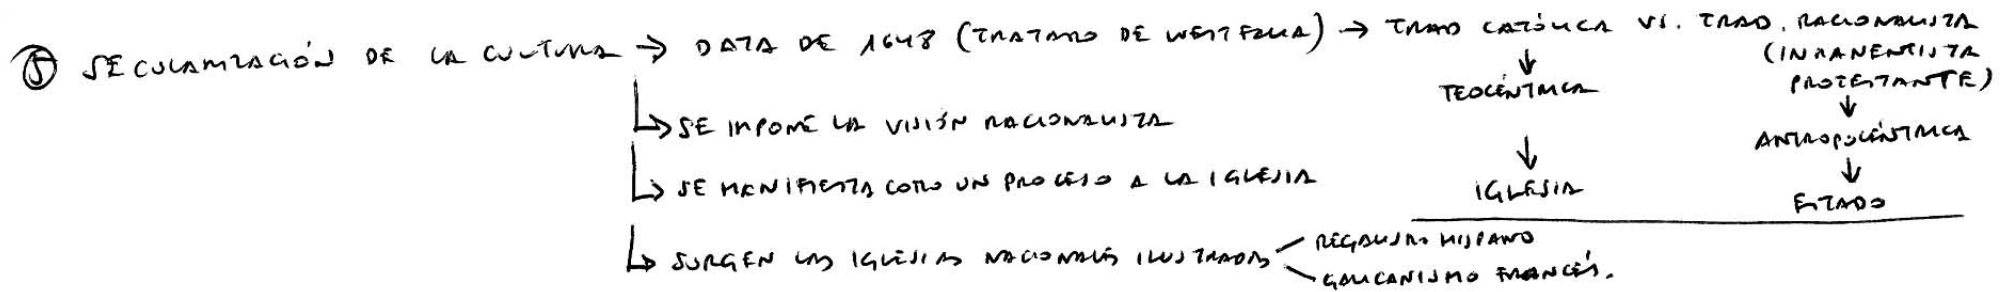 ⑤ SECULARIZACIÓN DE LA CULTURA → DATA DE 1648 (TRATADO DE WESTFALIA) → TRAD CATÓLICA VS. TRAD. RACIONALISTA
(INMANENTISTA
PROTESTANTE)
↓ TEOCÉNTRICA
↳ SE IMPONE LA VISIÓN RACIONALISTA
↓ ANTROPOCÉNTRICA
↳ SE MANIFIESTA COMO UN PROCESO A LA IGLESIA
↓ IGLESIA
↓ ESTADO
↳ SURGEN LAS IGLESIAS NACIONALES ILUSTRADAS
REGALISMO HISPANO
GALICANISMO FRANCÉS.